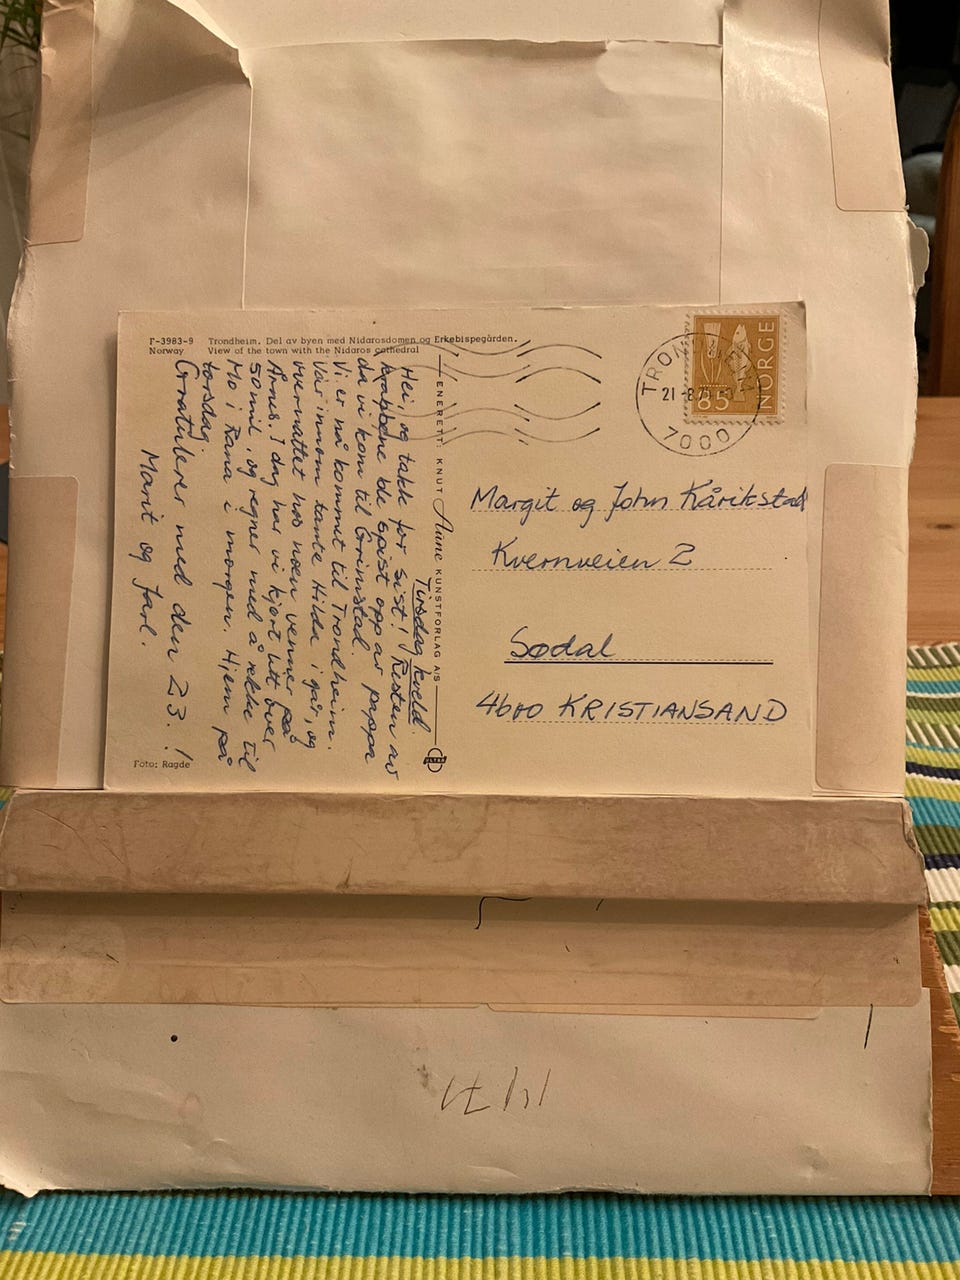 F-3983-9 Trondheim. Del av byen med Nidarosdomen og Erkebispegården.
Norway View of the town with the Nidaros cathedral
Tirsdag kveld.
Hei, og takk for sist! Resten av
krabbene ble spist opp av pappa
da vi kom til Grimstad.
Vi er nå kommet til Trondheim.
Var innom tante Hilda i går, og
overnattet hos noen venner på
Årnes. I dag har vi kjørt litt over
50 mil, og regner med å rekke til
Mo i Rana i morgen. Hjem på
torsdag.
Gratulerer med den 23.!
Marit og Jarl.
Foto: Ragde
ENERETT: KNUT Aune KUNSTFORLAG A/S
ULTRA
TRONDHEIM
21 -8
7000
NORGE
85
Margit og John Kårikstad
Kvernveien 2
Sødal
4600 KRISTIANSAND